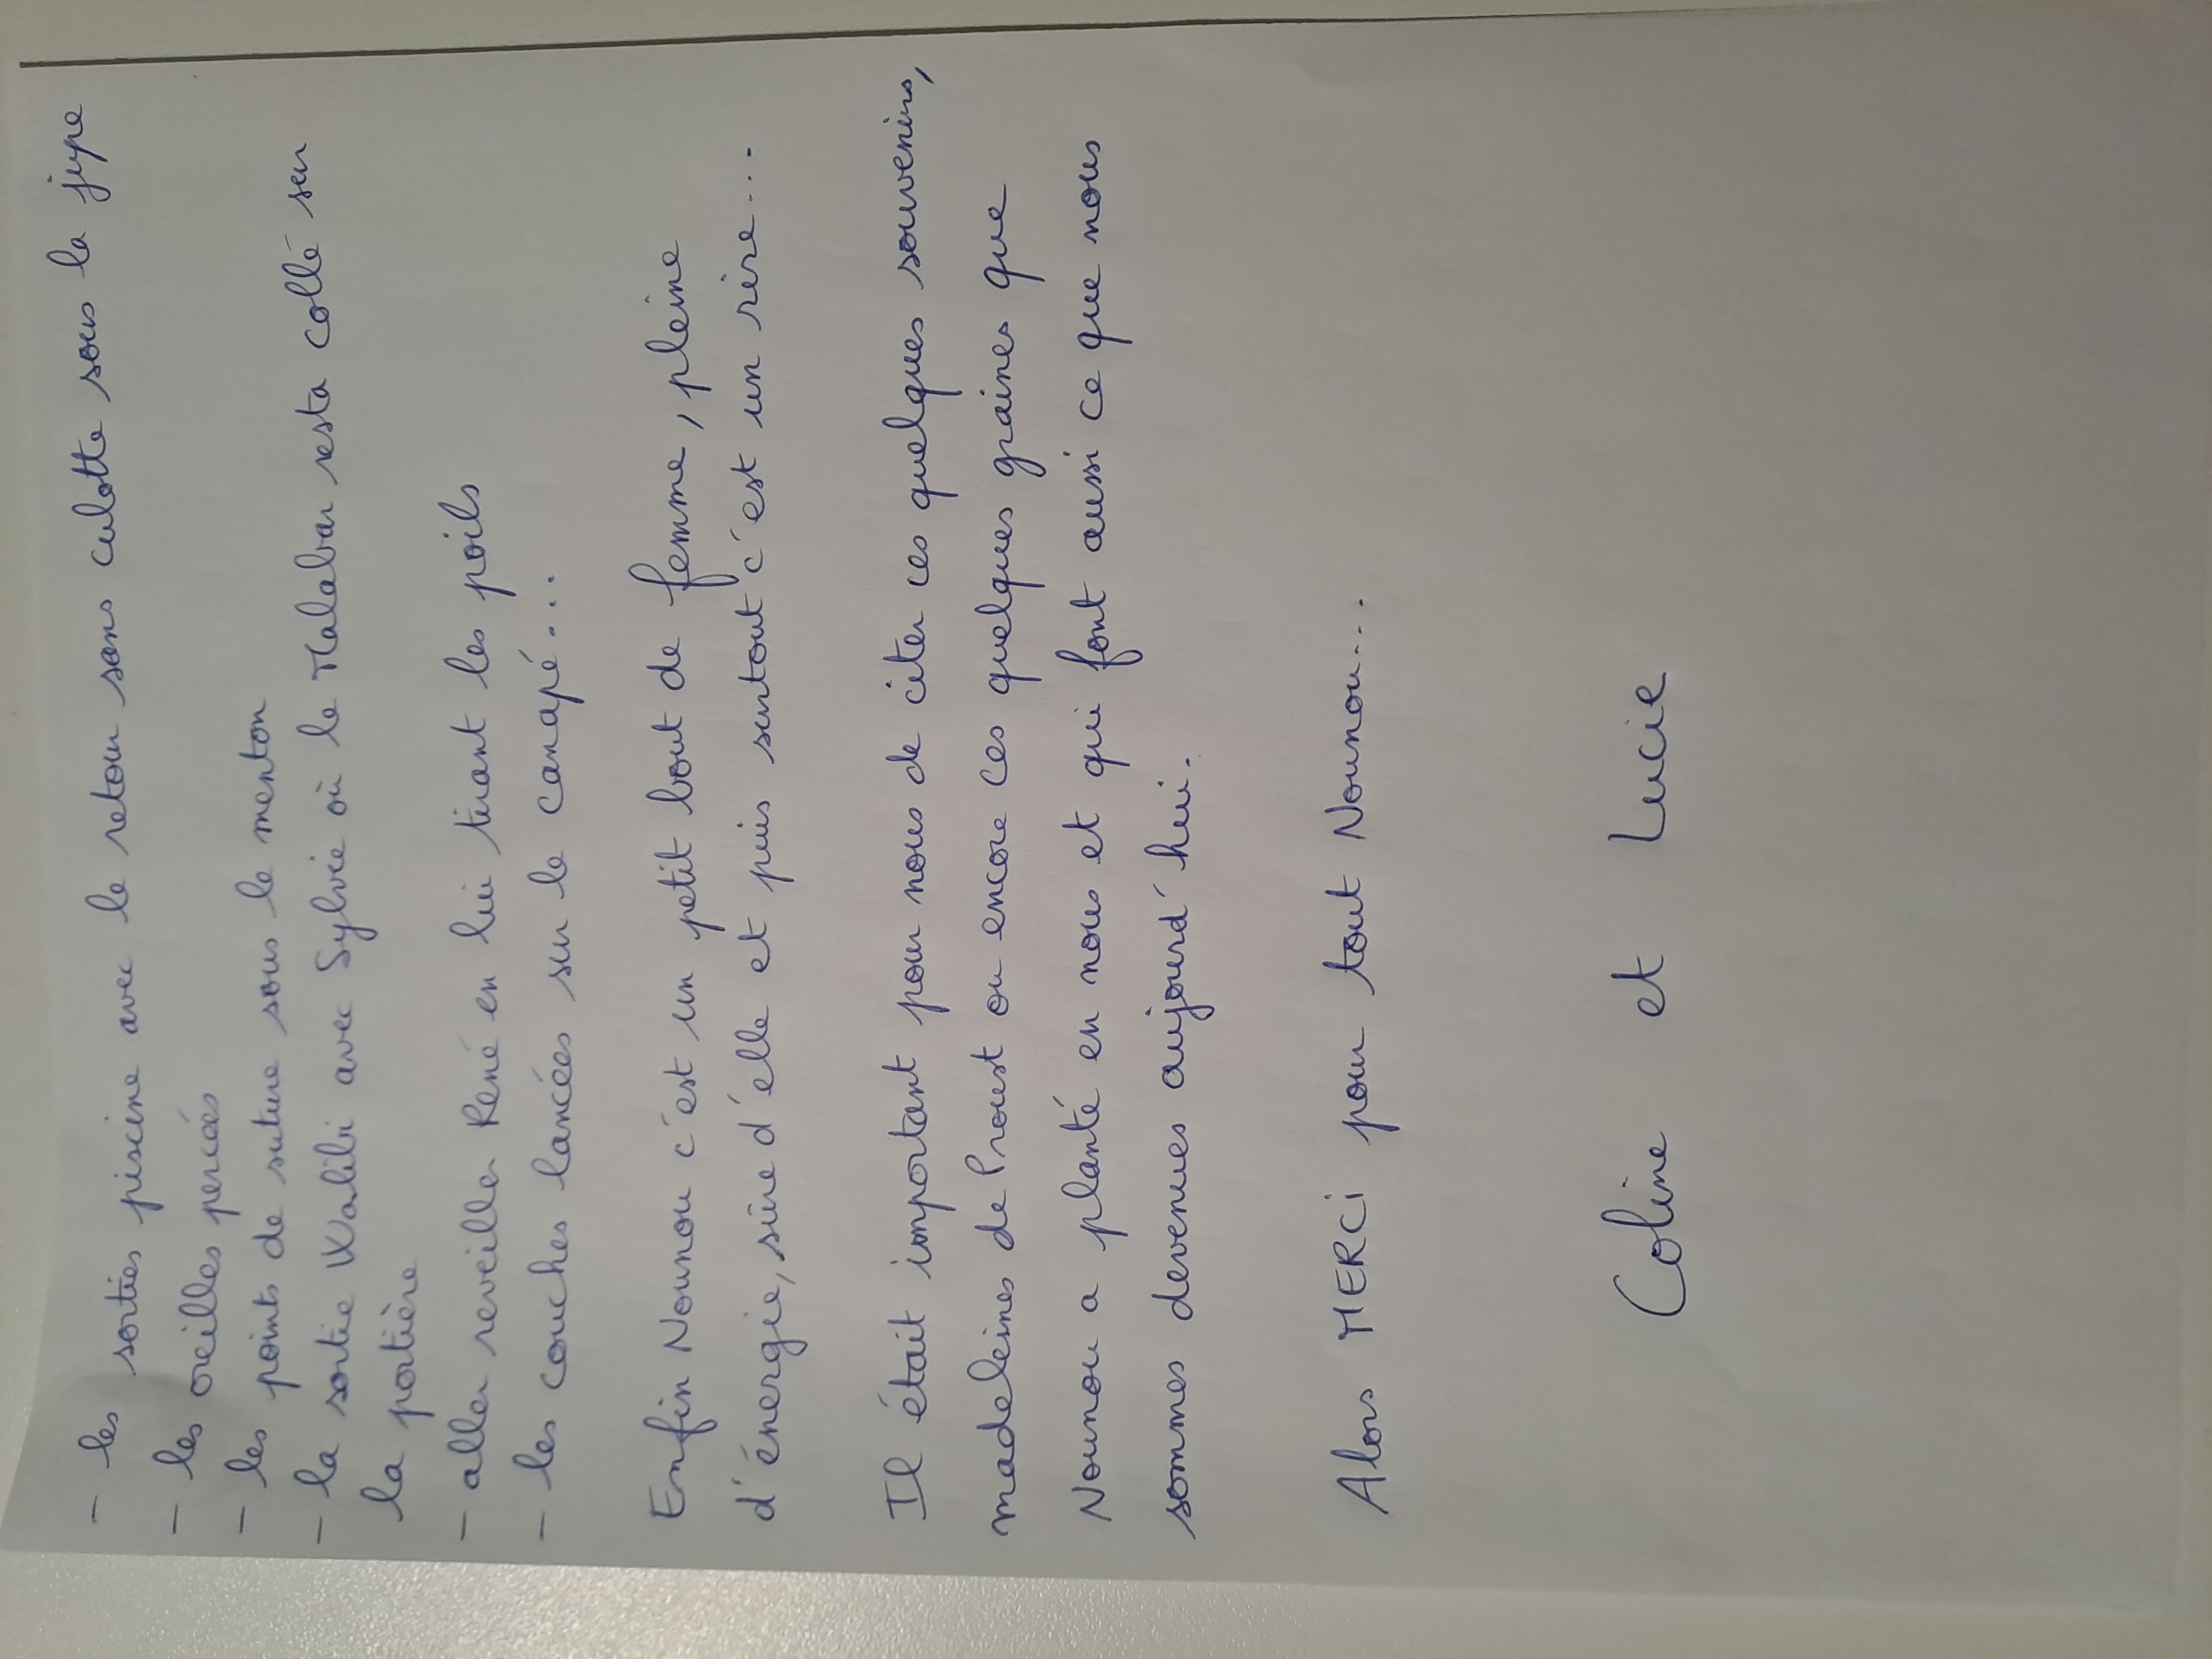 - les sorties piscine avec le retour sans culotte sous la jupe
- les oreilles percées
- les points de suture sous le menton
- la sortie Walibi avec Sylvie où le Malabar resta collé sur
la portière
- aller reveiller René en lui tirant les poils
- les couches lancées sur le canapé...
Enfin Nounou c'est un petit bout de femme, pleine
d'énergie, sûre d'elle et puis surtout c'est un rire....
Il était important pour nous de citer ces quelques souvenirs,
madeleines de Proust ou encore ces quelques graines que
Nounou a planté en nous et qui font aussi ce que nous
sommes devenues aujourd'hui.
Alors MERCI pour tout Nounou...
Coline et Lucie